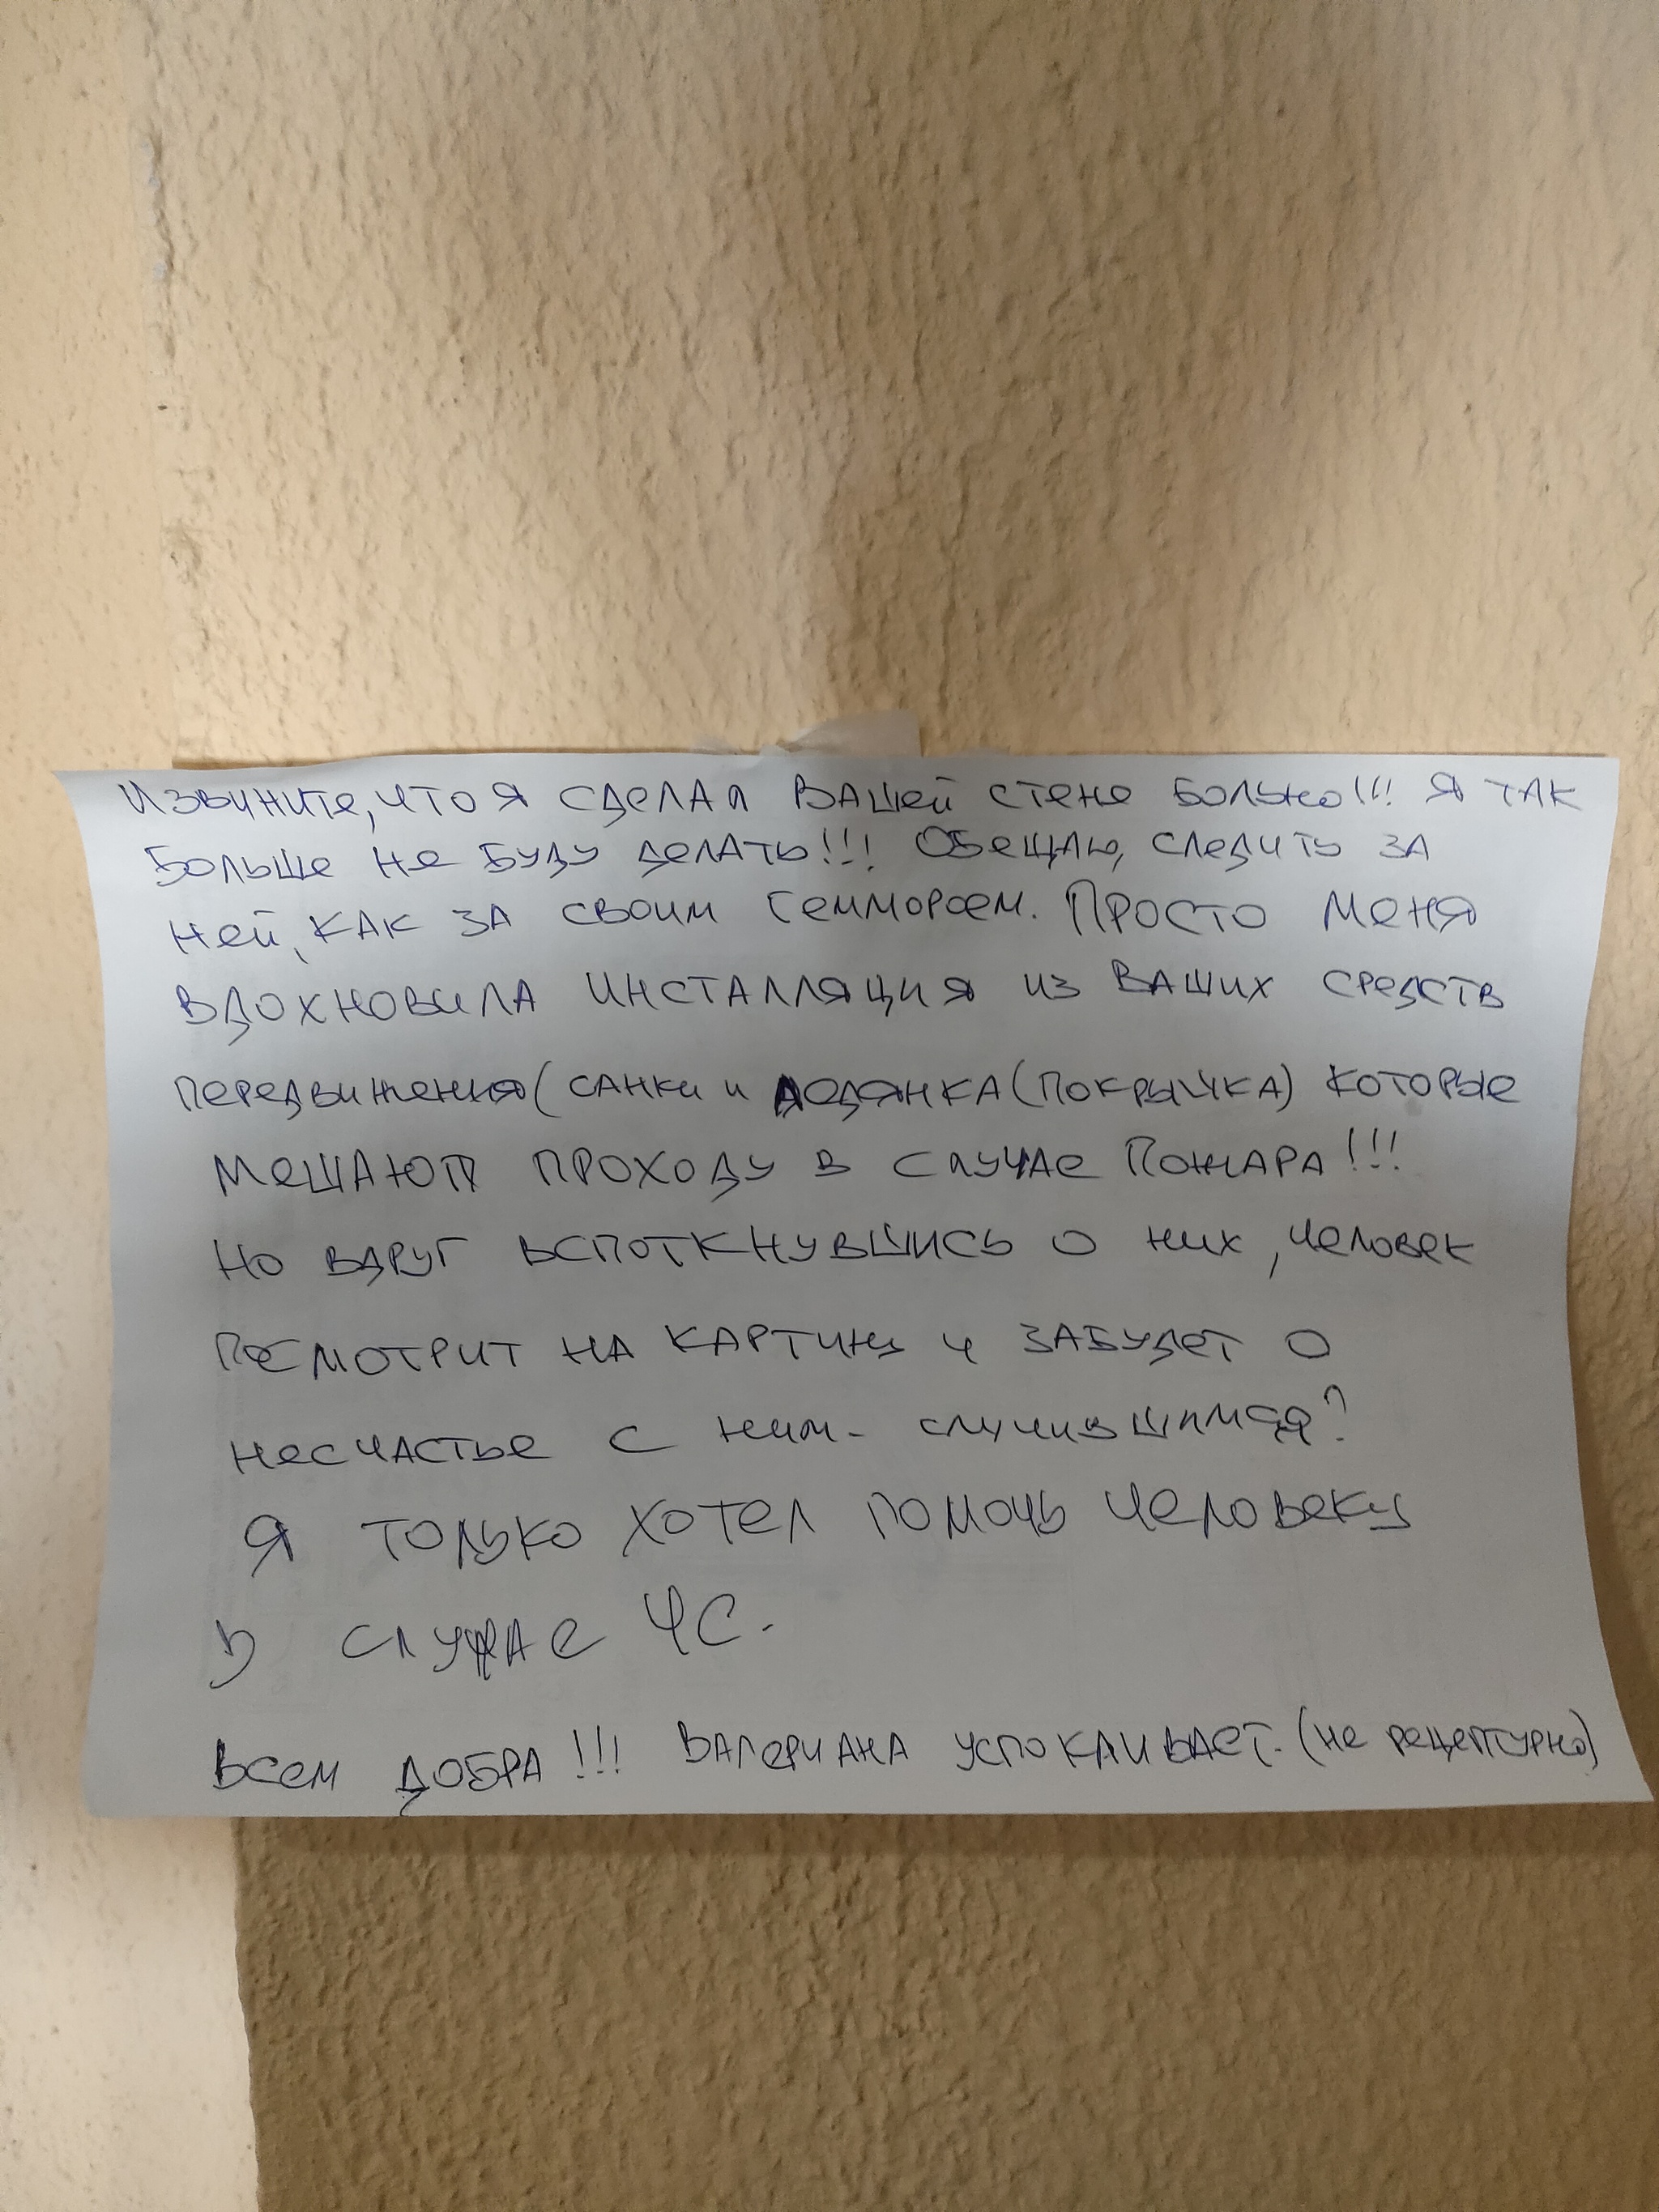 Извините, что я сделал вашей стене больно!!! Я так
больше не буду делать!!! Обещаю, следить за
ней, как за своим геммороем. Просто меня
вдохновила инсталляция из ваших средств
передвижения (санки и ледянка (покрычка) которые
мешают проходу в случае пожара!!!
Но вдруг вспоткнувшись о них, человек
посмотрит на картину и забудет о
несчастье с ним - случившимся?
Я только хотел помочь человеку
в случае ЧС.
Всем добра!!! Валериана успокаивает. (не рецептурно)